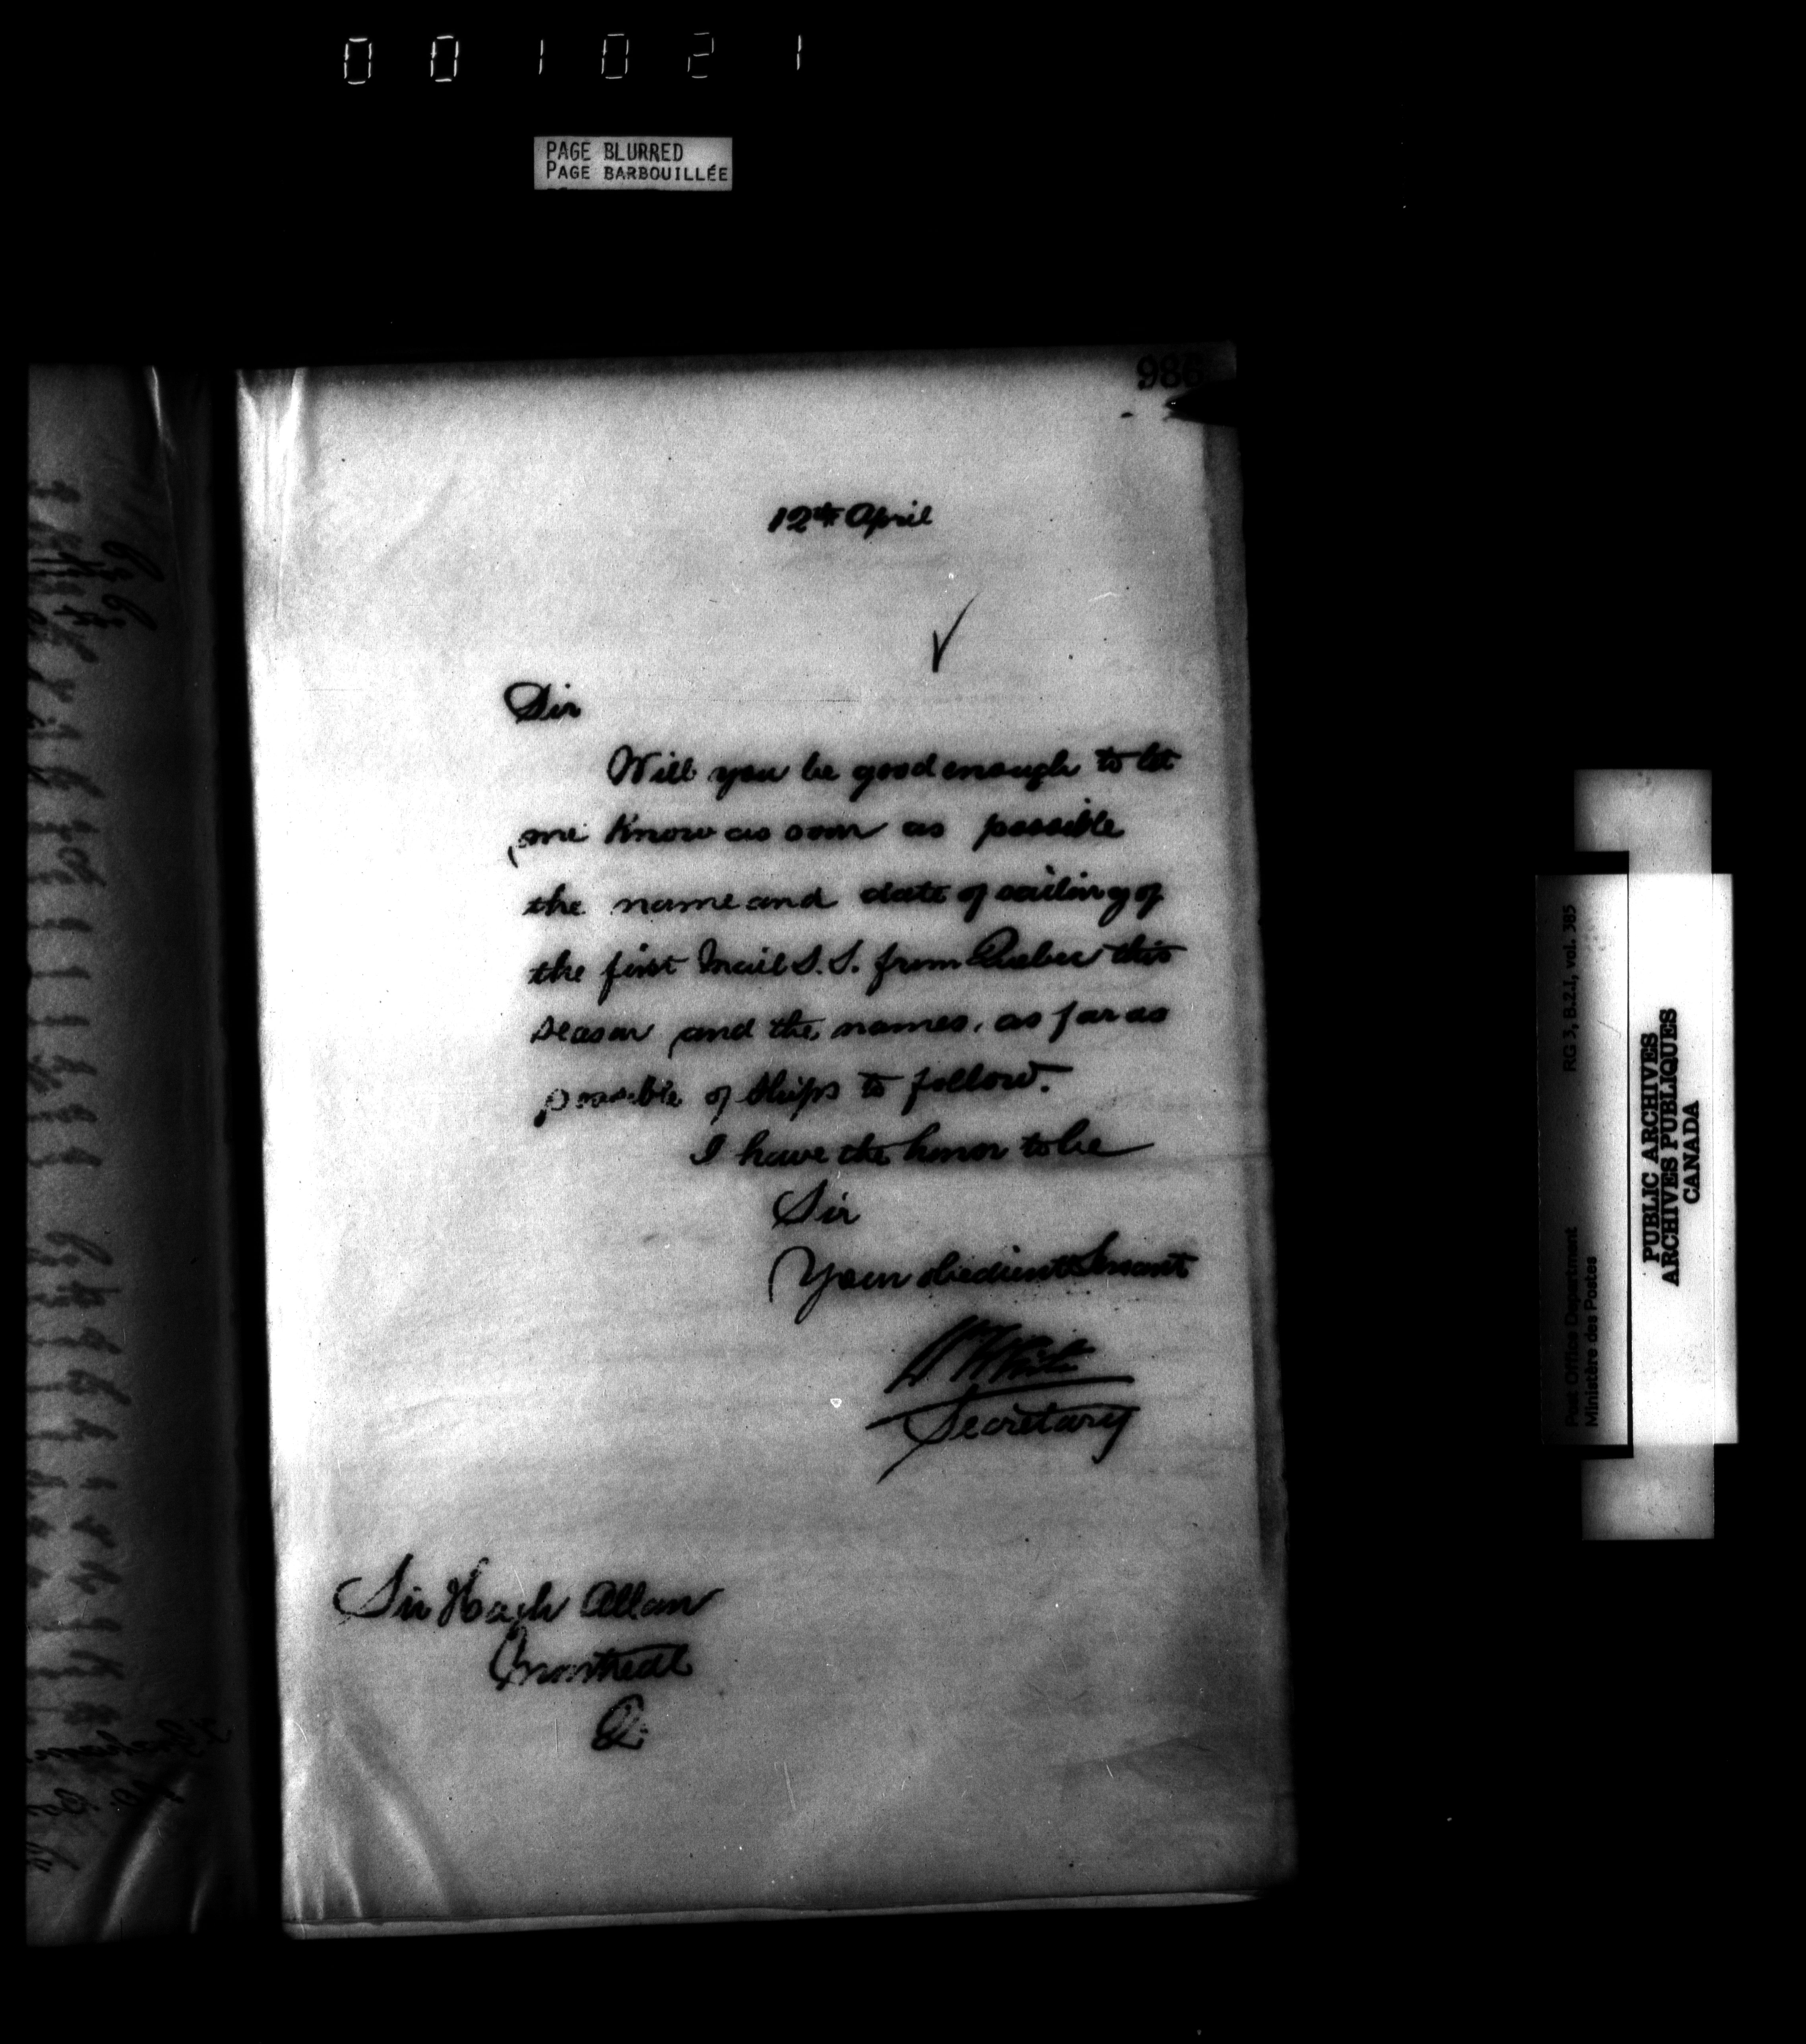 001021
PAGE BLURRED
PAGE BARBOUILLÉE
986
12th April
Sir
Will you be good enough to let
me know as soon as possible
the name and date of sailing of
the first Mail S.S. from Quebec this
season and the names, as far as
possible of ships to follow.
I have the honor to be
Sir
Your obedient Servant
W White
Secretary
Sir Hugh Allan
Montreal
Q.
Post Office Department
Ministère des Postes
RG 3, B.2.1, vol. 385
PUBLIC ARCHIVES
ARCHIVES PUBLIQUES
CANADA